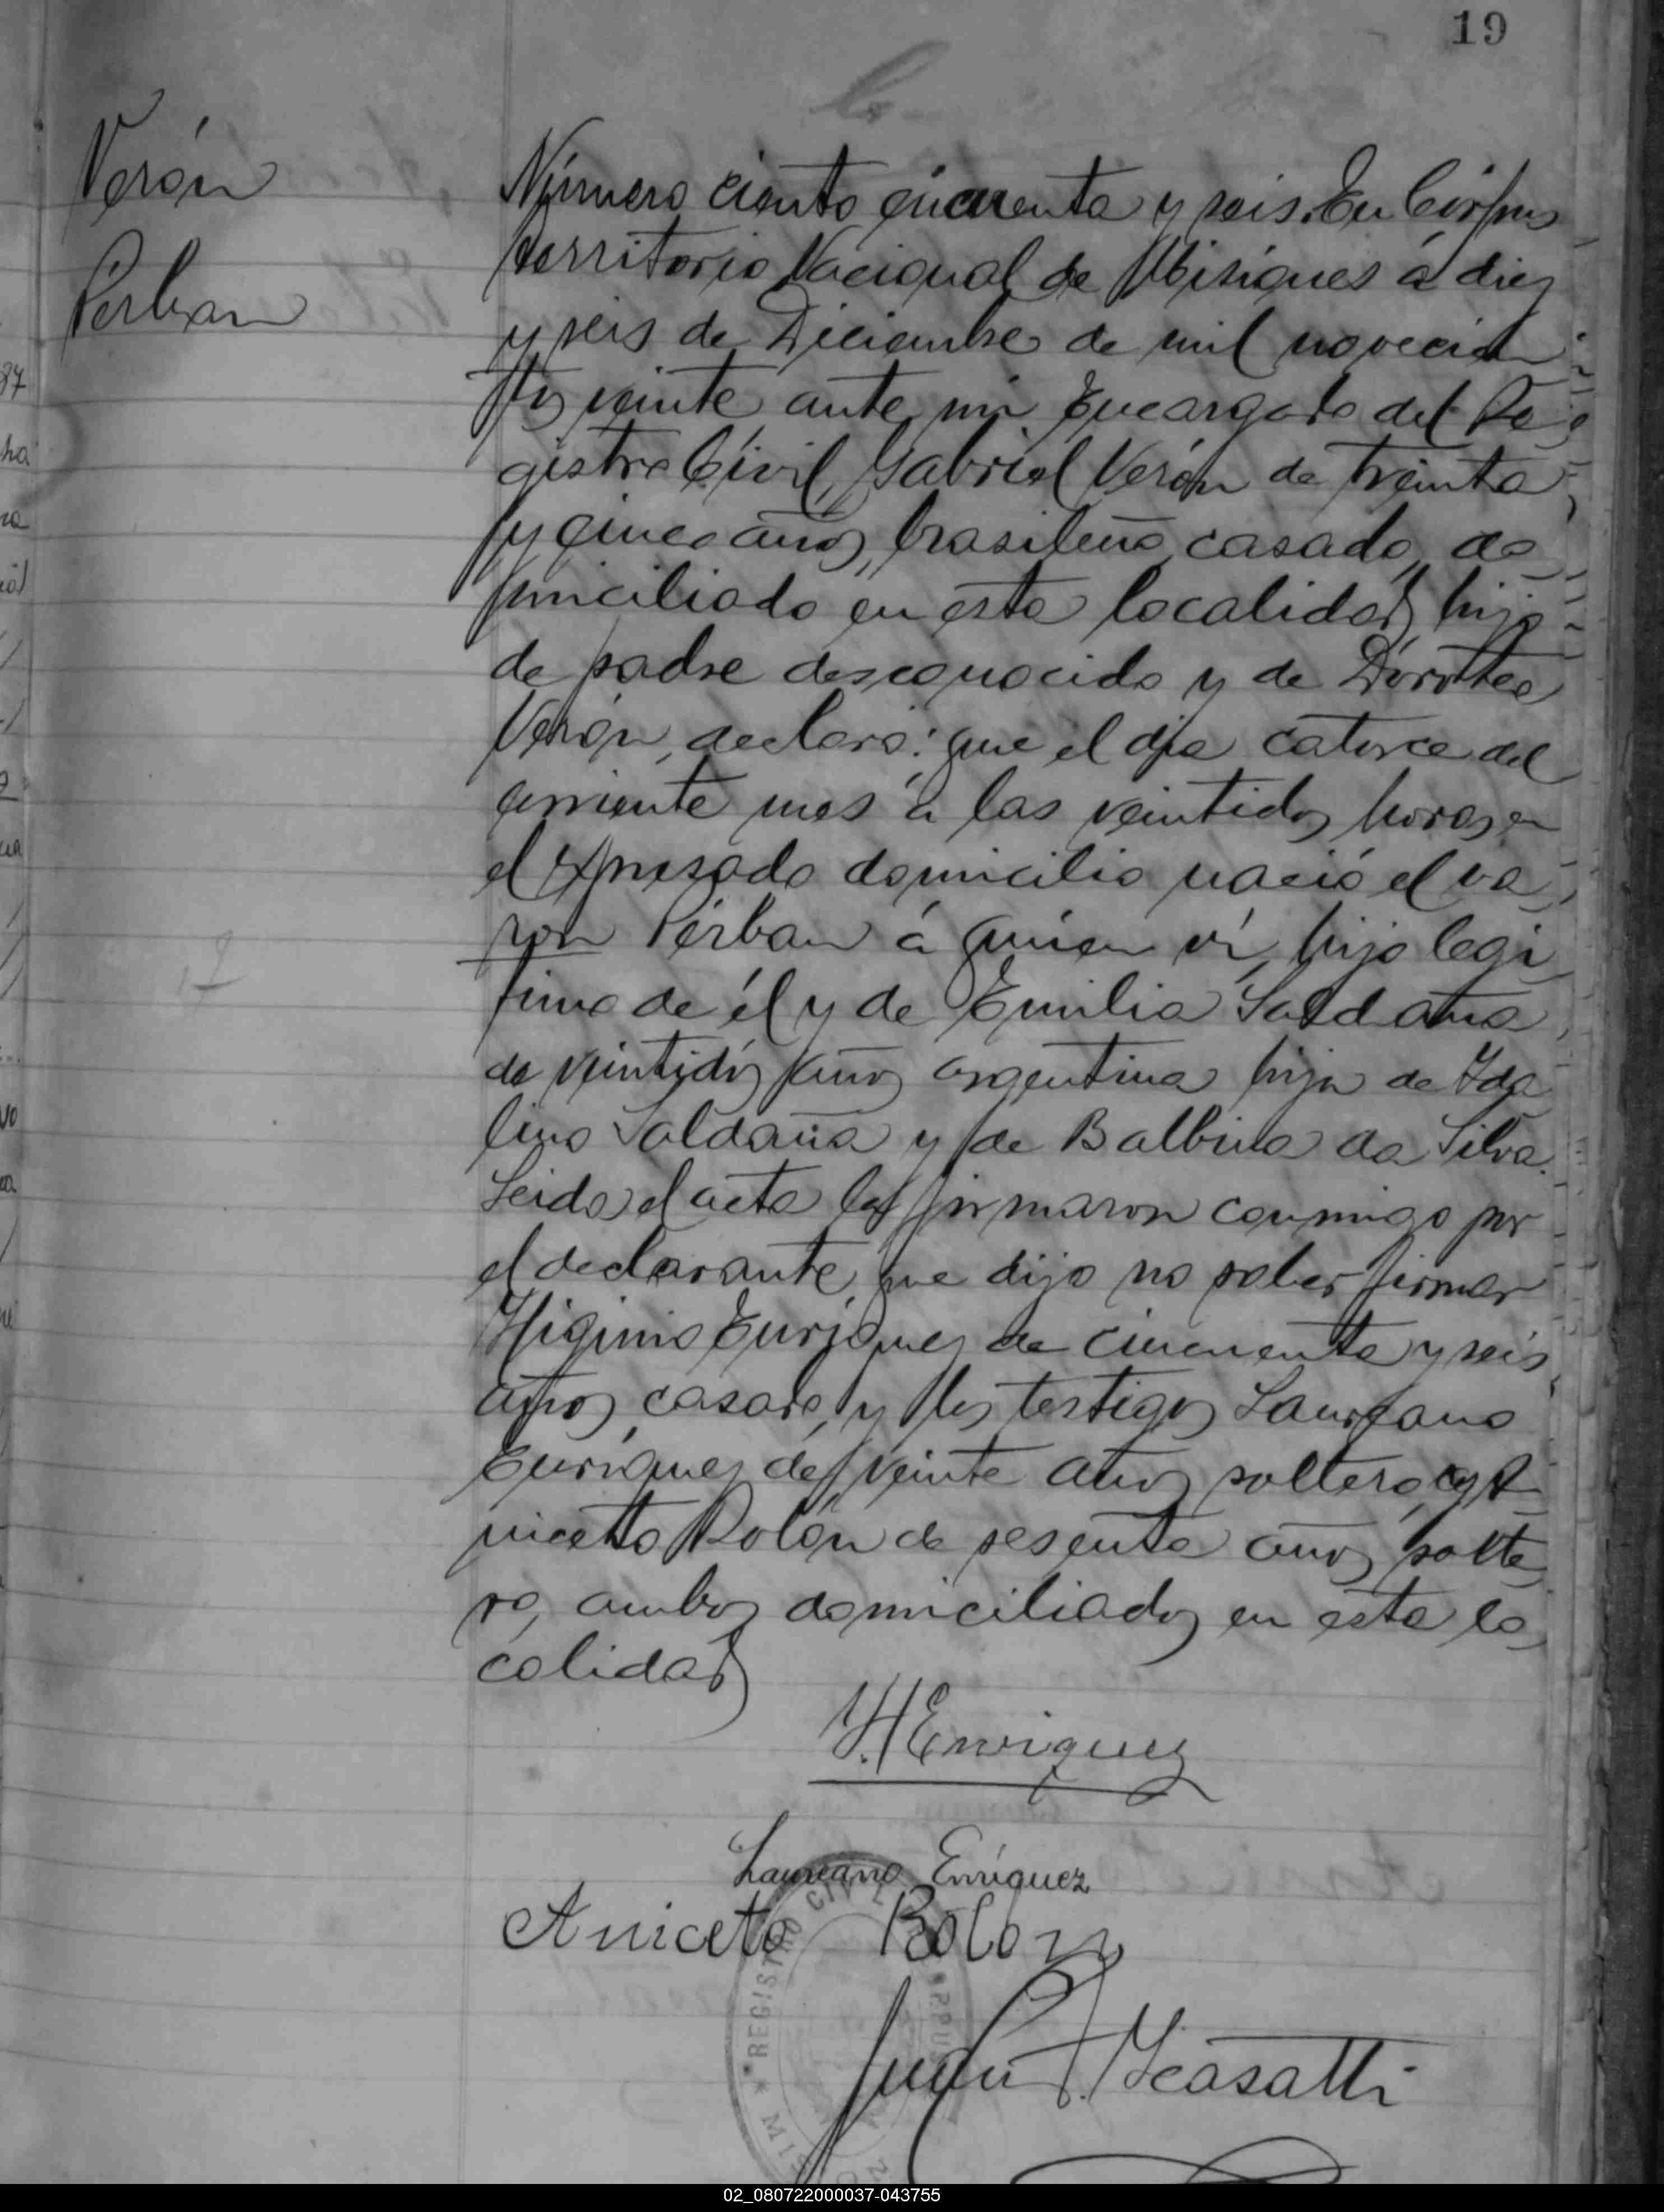 19
Verón
Perban
Número ciento cincuenta y seis. En Córpus
territorio Nacional de Misiones á diez
y seis de Diciembre de mil novecien
tos veinte ante mi Encargado del Re
gistro Civil, Gabriel Verón de treinta
y cinco años, brasileño, casado, do
miciliado en esta localidad, hijo
de padre desconocido y de Dorotea
Verón, declaró: que el dia catorce del
corriente mes á las veintidos horas en
el expresado domicilio nació el va
ron Pérban á quien ví, hijo legi
timo de él y de Emilia Saldaña
de veintidós años argentina hija de Ida
lino Saldaña y de Balbina da Silva.
Leida el acta la firmaron conmigo por
el declarante, que dijo no saber firmar
Higinio Enriquez de cincuenta y seis
años, casado, y los testigos Laureano
Enriquez de veinte años soltero, y A
niceto Rolón de sesenta años, solte
ro, ambos domiciliados en esta lo
calidad
H Enriquez
Laureano Enriquez
Aniceto Rolon
REGISTRO CIVIL
Juan
02_080722000037-043755